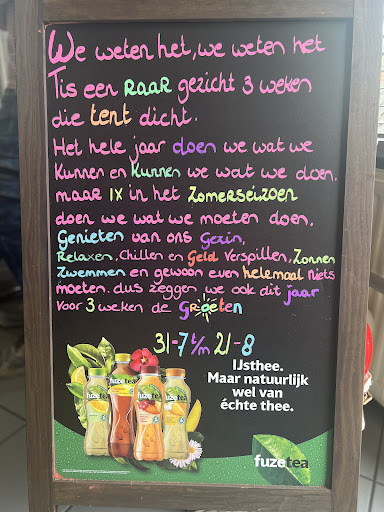 We weten het, we weten het
Tis een RAAR gezicht 3 weken
die tent dicht.
Het hele jaar doen we wat we
Kunnen en kunnen we wat we doen,
maar 1x in het Zomerseizoen
doen we wat we moeten doen,
Genieten van ons Gezin,
Relaxen, Chillen en Geld Verspillen, Zonnen
Zwemmen en gewoon even helemaal niets
moeten. dus zeggen we ook dit jaar
voor 3 weken de Groeten
31-7 t/m 21-8
IJsthee.
Maar natuurlijk
wel van
échte thee.
fuzetea
fuzetea
fuzetea
fuzetea
fuzetea